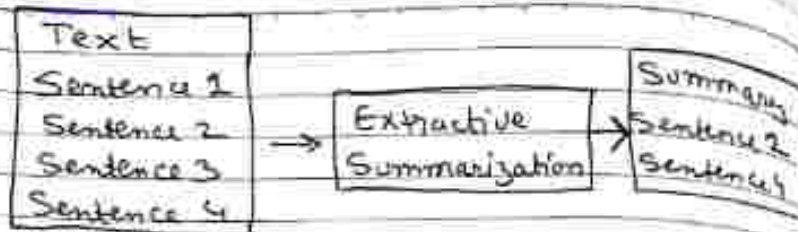 Text
Sentence 1
Sentence 2
Sentence 3
Sentence 4
→
Extractive
Summarization
→
Summary
Sentence 2
Sentence 4